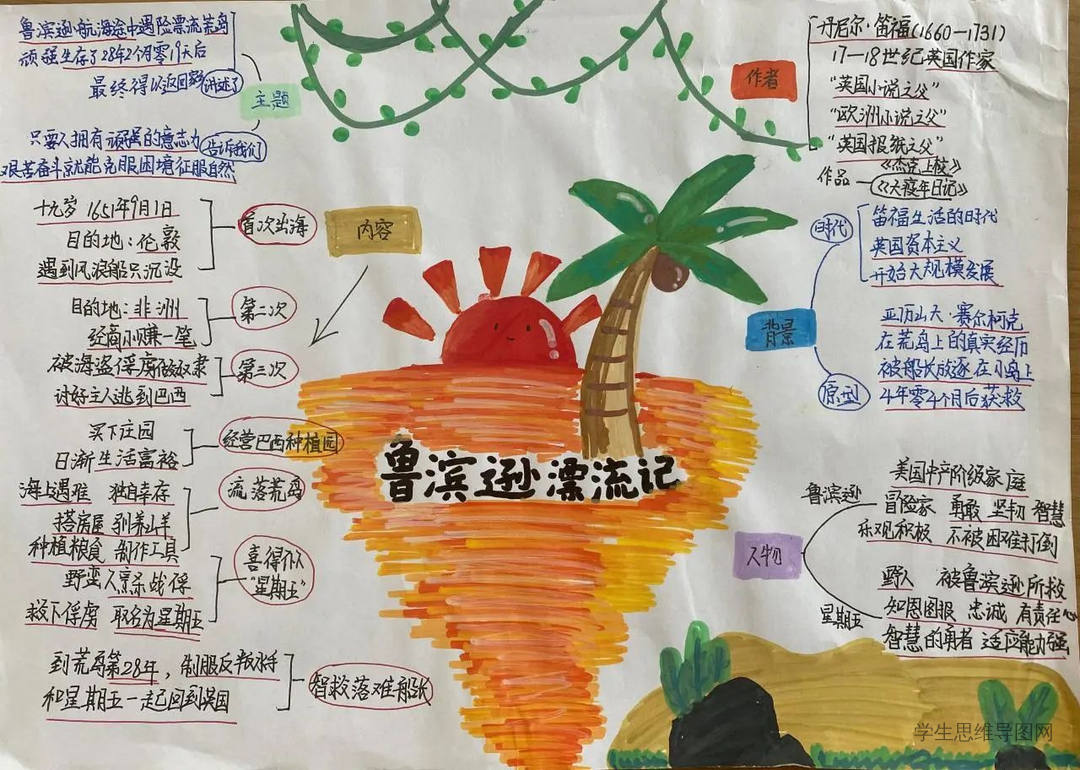 鲁滨逊漂流记
主题
鲁滨逊航海途中遇险漂流荒岛
顽强生存了28年2个月零19天后
最终得以返回故乡
讲述了
只要人拥有顽强的意志力
艰苦奋斗就能克服困境征服自然
告诉我们
内容
首次出海
十九岁 1651年9月1日
目的地:伦敦
遇到风浪船只沉没
第二次
目的地:非洲
经商小赚一笔
第三次
被海盗俘虏做奴隶
讨好主人逃到巴西
经营巴西种植园
买下庄园
日渐生活富裕
流落荒岛
海上遇难 独自幸存
搭房屋 驯养山羊
种植粮食 制作工具
喜得仆人
"星期五"
野蛮人烹杀战俘
救下俘虏 取名为星期五
智救落难船长
到荒岛第28年,制服反叛水手
和星期五一起回到英国
作者
丹尼尔·笛福(1660—1731)
17—18世纪英国作家
"英国小说之父"
"欧洲小说之父"
"英国报纸之父"
作品
《杰克上校》
《大疫年日记》
背景
时代
笛福生活的时代
英国资本主义
开始大规模发展
原型
亚历山大·赛尔柯克
在荒岛上的真实经历
被船长放逐在小岛上
4年零4个月后获救
人物
鲁滨逊
美国中产阶级家庭
冒险家 勇敢 坚韧 智慧
乐观积极 不被困难打倒
星期五
野人 被鲁滨逊所救
知恩图报 忠诚 有责任心
智慧的勇者 适应能力强
学生思维导图网